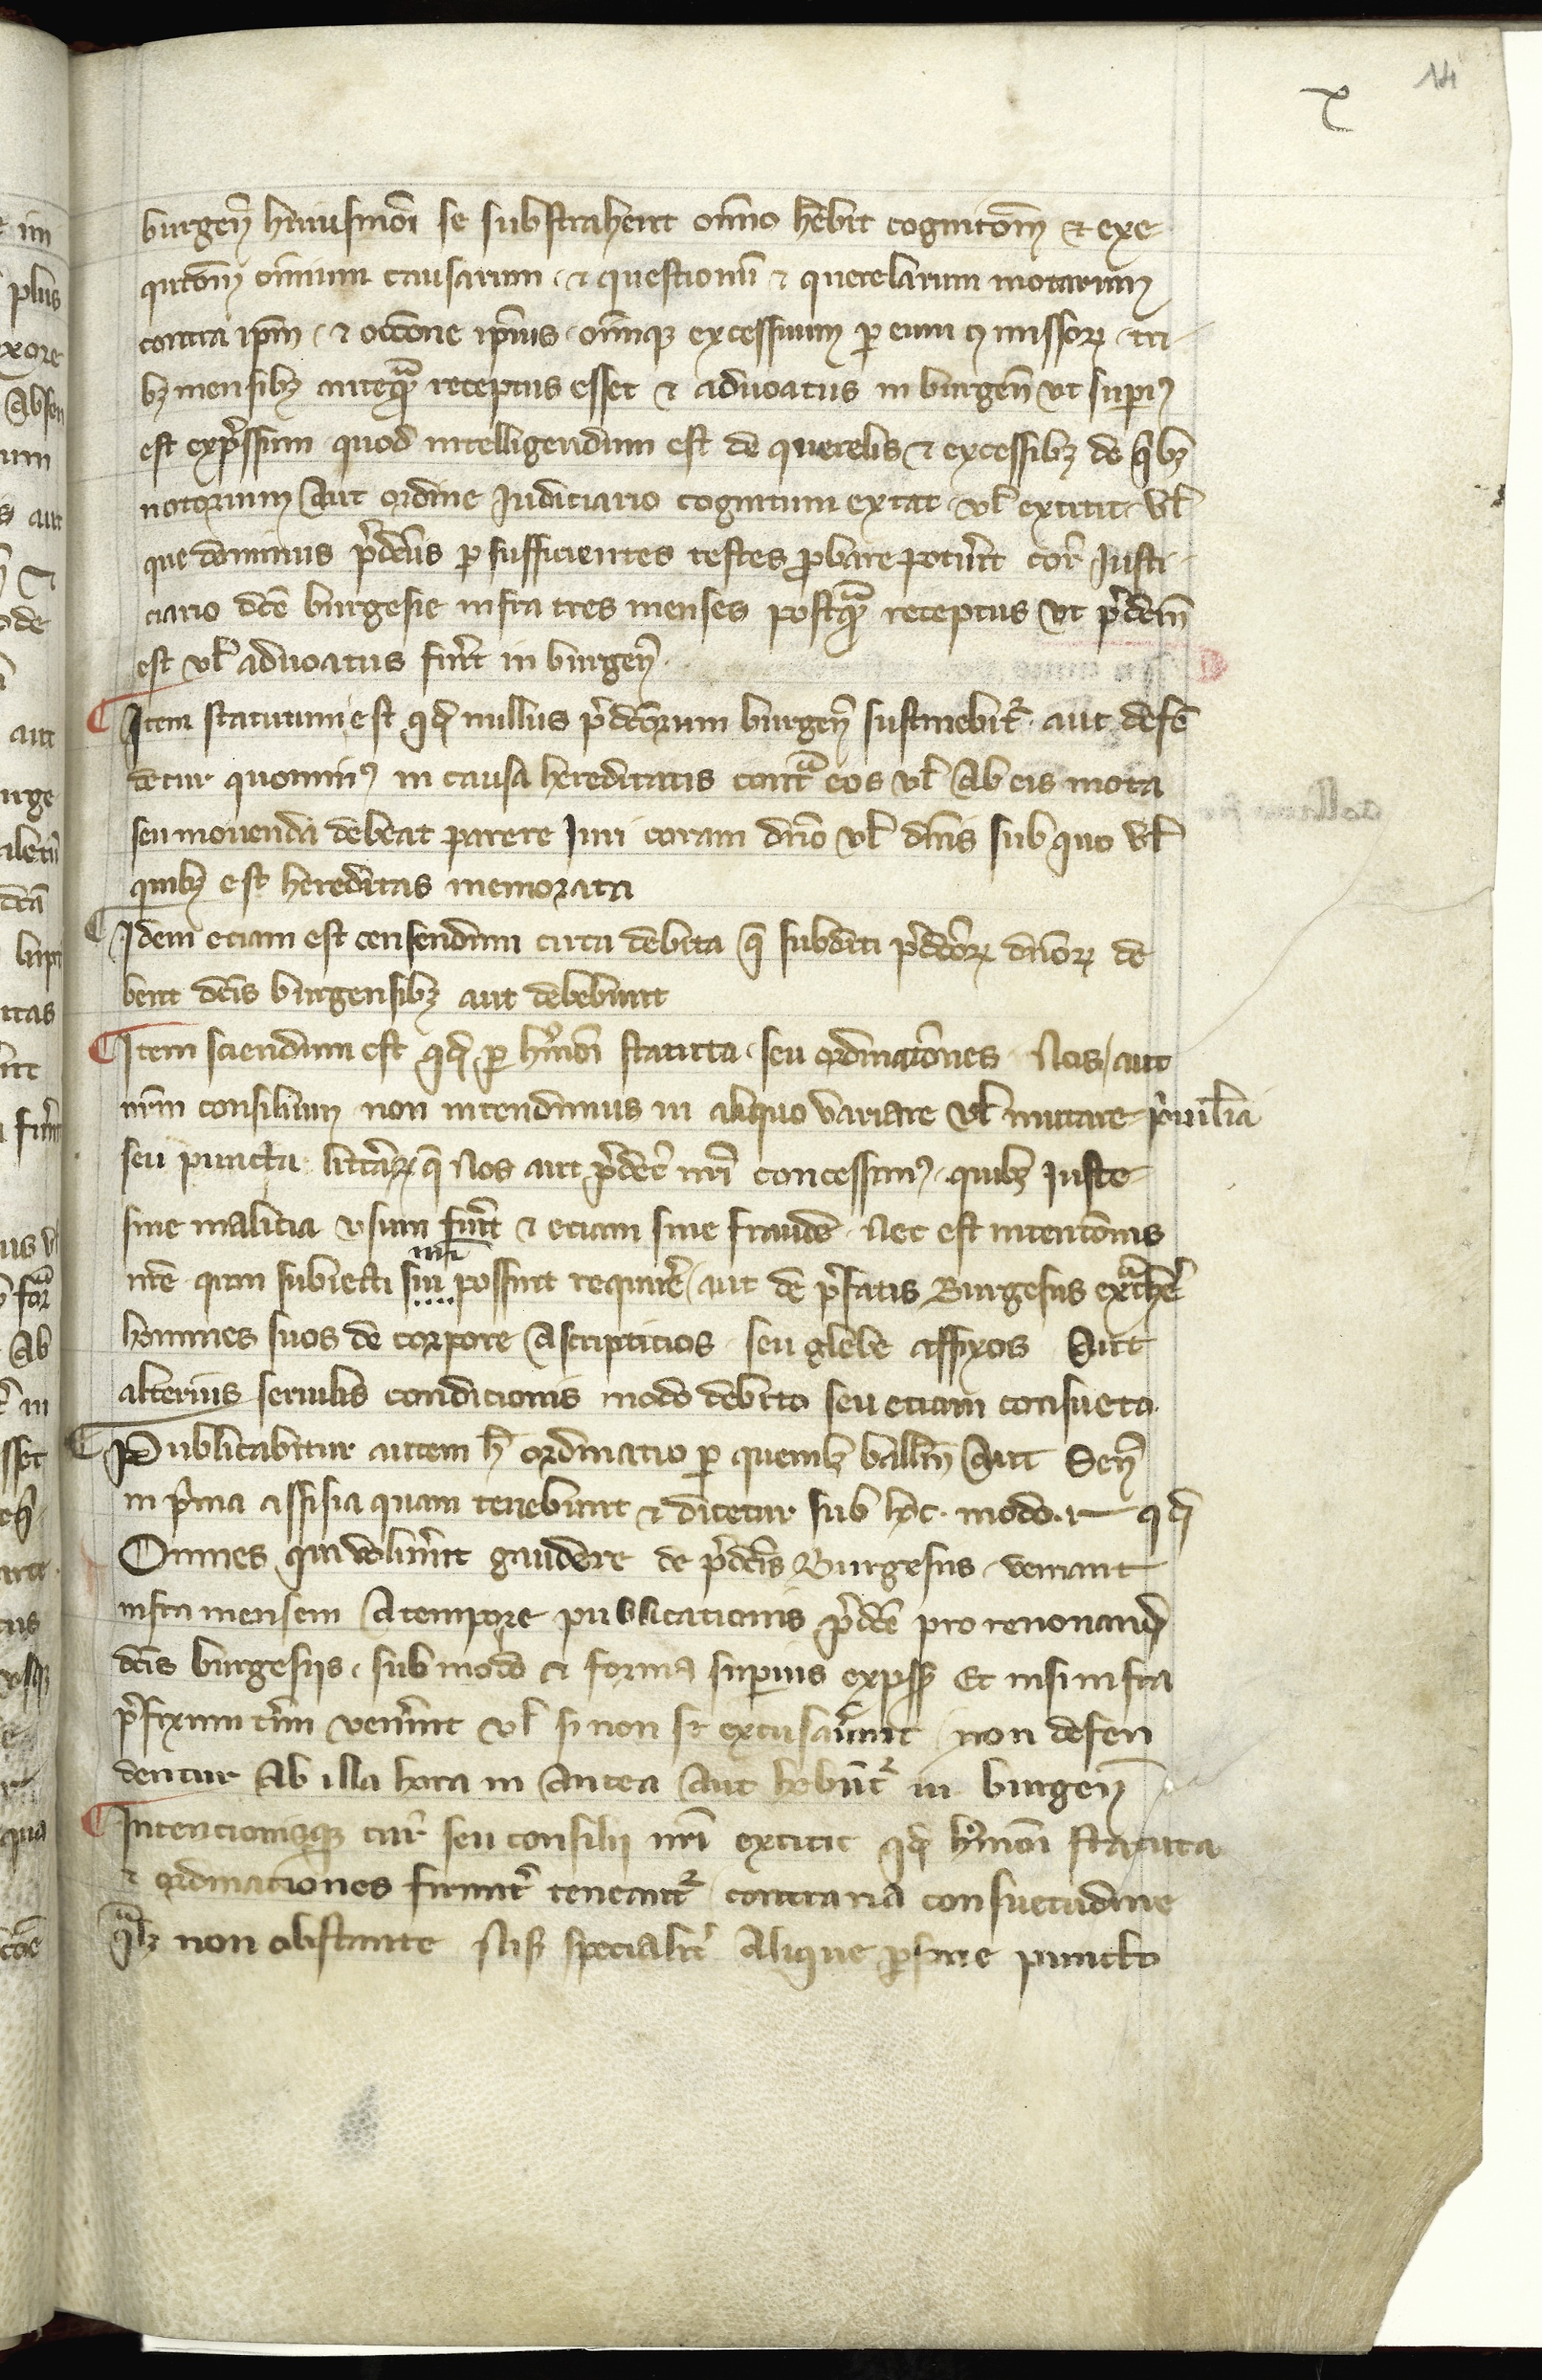 14
x
burgeñ huiusmoi se substrahent om̄no hēbit cognitōm & exe
qutōm om̄ium causarum · & questionū & querelarum motarum
contra ip̄m · & occ̄one ip̄ius · om̄iūqꝫ excessuum ꝑ eum ꝯmissoꝝ · tri
bꝫ mensibꝫ anteqᵃm receptus esset & aduoatus in burgen̄ vt supiꝰ
est exp̄ssum quod intelligendum est de querelis & excessibꝫ de qⁱbꝫ
notorium Aut ordine Iudiciario cognitum extat · vl̄ extitit · vl̄
que dominus p̄dcūs ꝑ sufficientes testes ꝓbare potūit cor̄ Iusti
ciario dc̄e burgesie infra tres menses postqᵃm receptus vt p̄dcm̄
est vl̄ aduoatus fūit in burgen̄ ·
Item statutum est qd̄ nullus p̄dc̄orum burgen̄ sustinebit̉ · aut defē
detur quominꝰ in causa hereditatis contᵃ eos vl̄ Ab eis mota
seu mouenda debeat parere Iuri coram dn̄o vl̄ dn̄is sub quo vl̄
quibꝫ est hereditas memorata
Idem eciam est censendum circa debita q̄ subditi p̄dc̄oꝝ dn̄oꝝ de
bent dc̄is burgensibꝫ aut debebunt
Item sciendum est qd̄ ꝑ hꝰmōi statuta · seu ordinatōnes · Nos / aut
nr̄m consilium non intendimus in aliquo variare vl̄ mutare p̄uil̄ia
seu puncta litt̄aꝝ q̄ Nos aut p̄dec̄ nr̄i concessimꝰ · quibꝫ Iuste
sine malicia vsum fūit & eciam sine fraude · Nec est intentōnis
nr̄e quin subiecti sui nr̄i possint requirē / aut de p̄fatis Burgesiis extᵃhē
homines suos de corpore Ascripticios · seu glebe affixos Aut
alterius seruilis condicionis modo debito seu eciam consueto ·
Publicabitur autem h̄ ordinatio ꝑ quemlꝫ ballm̄ Aut Sen̄
in p̄ma assisia quam tenebunt & dicetur sub hoc · modo · qd̄
Omnes qui volūint gaudere de p̄dc̄is Burgesiis · veniant
infra mensem A tempore publicationis p̄dc̄e pro renouand̄
dc̄is burgesiis · sub modo & forma superius exp̄ss Et nisi infra
p̄fixum t̄m venīint vl̄ si non se excusauīint / non defen
dentur Ab illa hora in Antea Aut hēbūt̉ in burgen̄
Intentionisqꝫ cur̄ seu consilii nr̄i extitit qd̄ hꝰmōi statuta
& ordinationes firmit̄ teneant̉ / contraria consuetudine
qᵃlꝫ non obstante Nisi specialit̄ Alique ꝑsone puncto